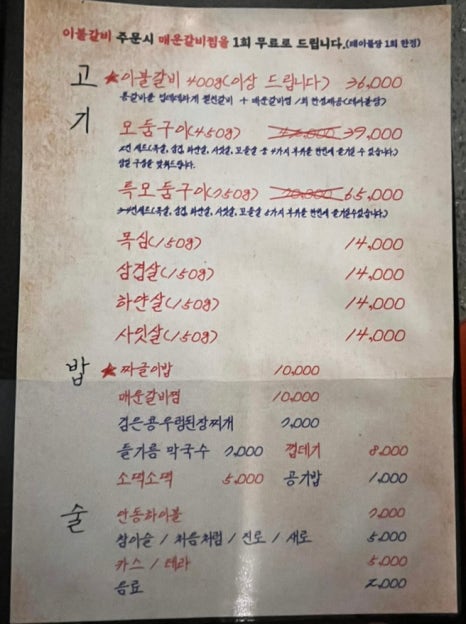 이불갈비 주문시 매운갈비찜을 1회 무료로 드립니다.(테이블당 1회 한정)
고기
★이불갈비 400g(이상 드립니다) 36,000
모둠구이(450g) 42,000 39,000
특모둠구이(750g) 70,000 65,000
목심(150g) 14,000
삼겹살(150g) 14,000
하얀살(150g) 14,000
사잇살(150g) 14,000
밥
★짜글이밥 10,000
매운갈비찜 10,000
검은콩우렁된장찌개 7,000
들기름 막국수 7,000 껍데기 8,000
소떡소떡 5,000 공기밥 1,000
술
안동하이볼 7,000
참이슬 / 처음처럼 / 진로 / 새로 5,000
카스 / 테라 5,000
음료 2,000